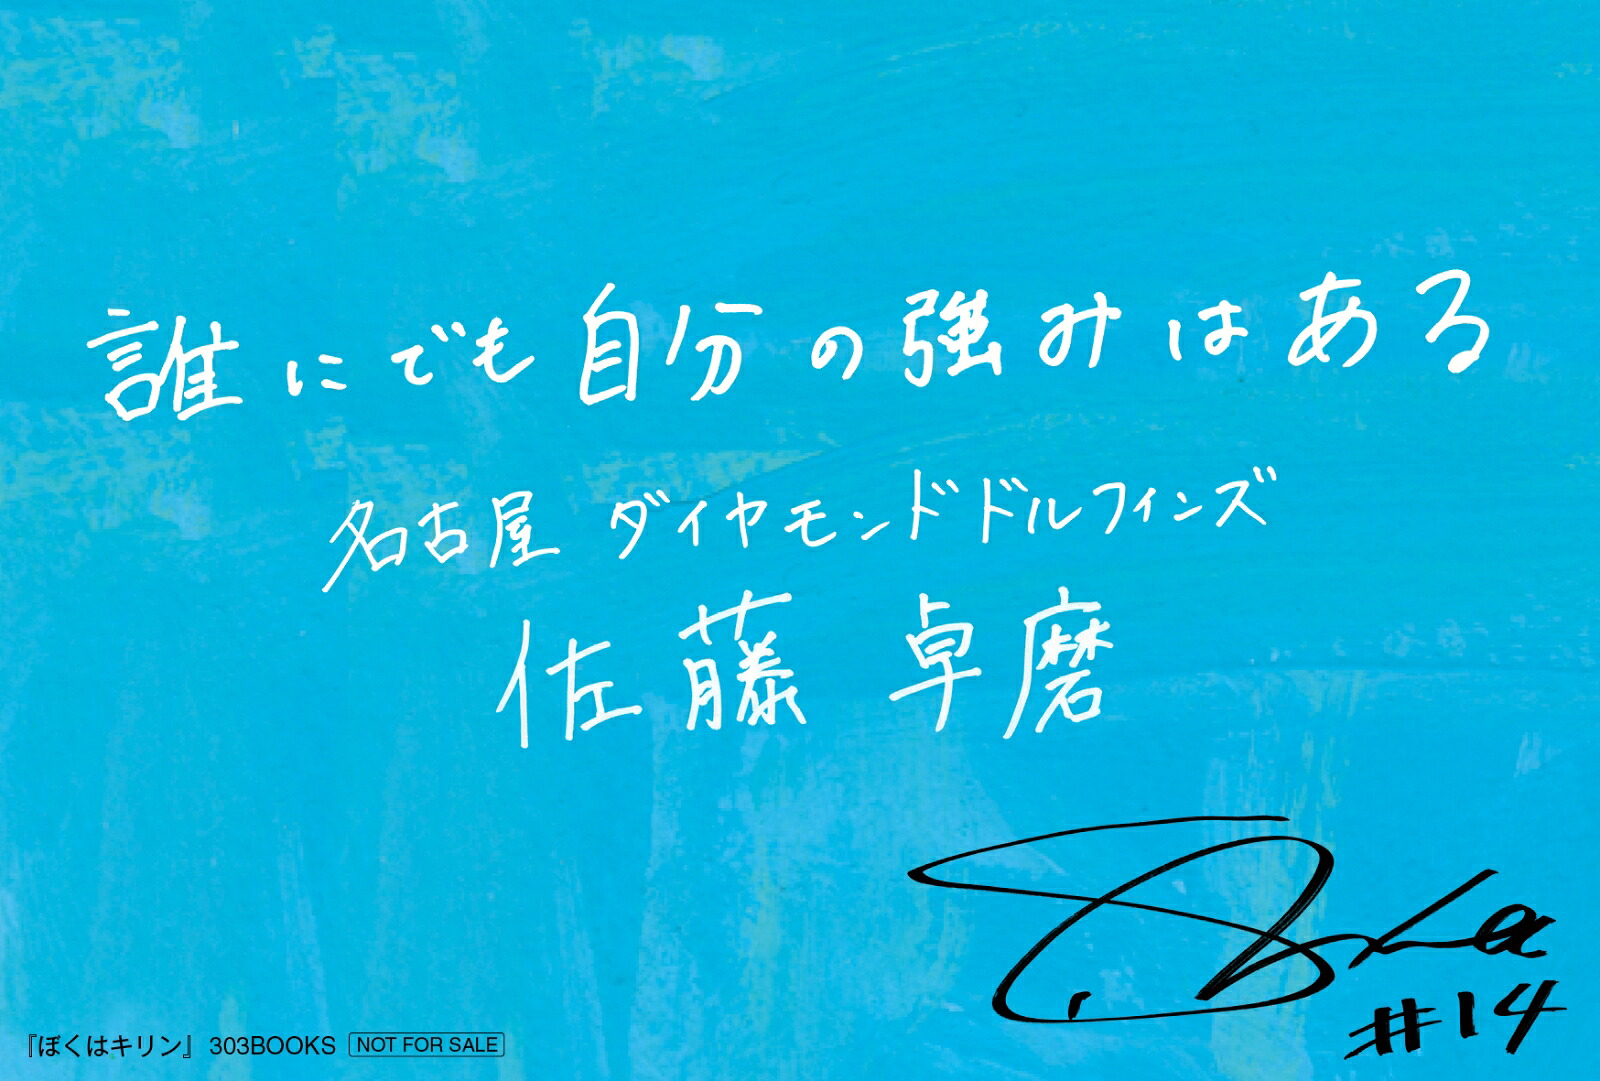 誰にでも自分の強みはある
名古屋 ダイヤモンドドルフィンズ
佐藤 卓磨
#14
『ぼくはキリン』 303BOOKS NOT FOR SALE